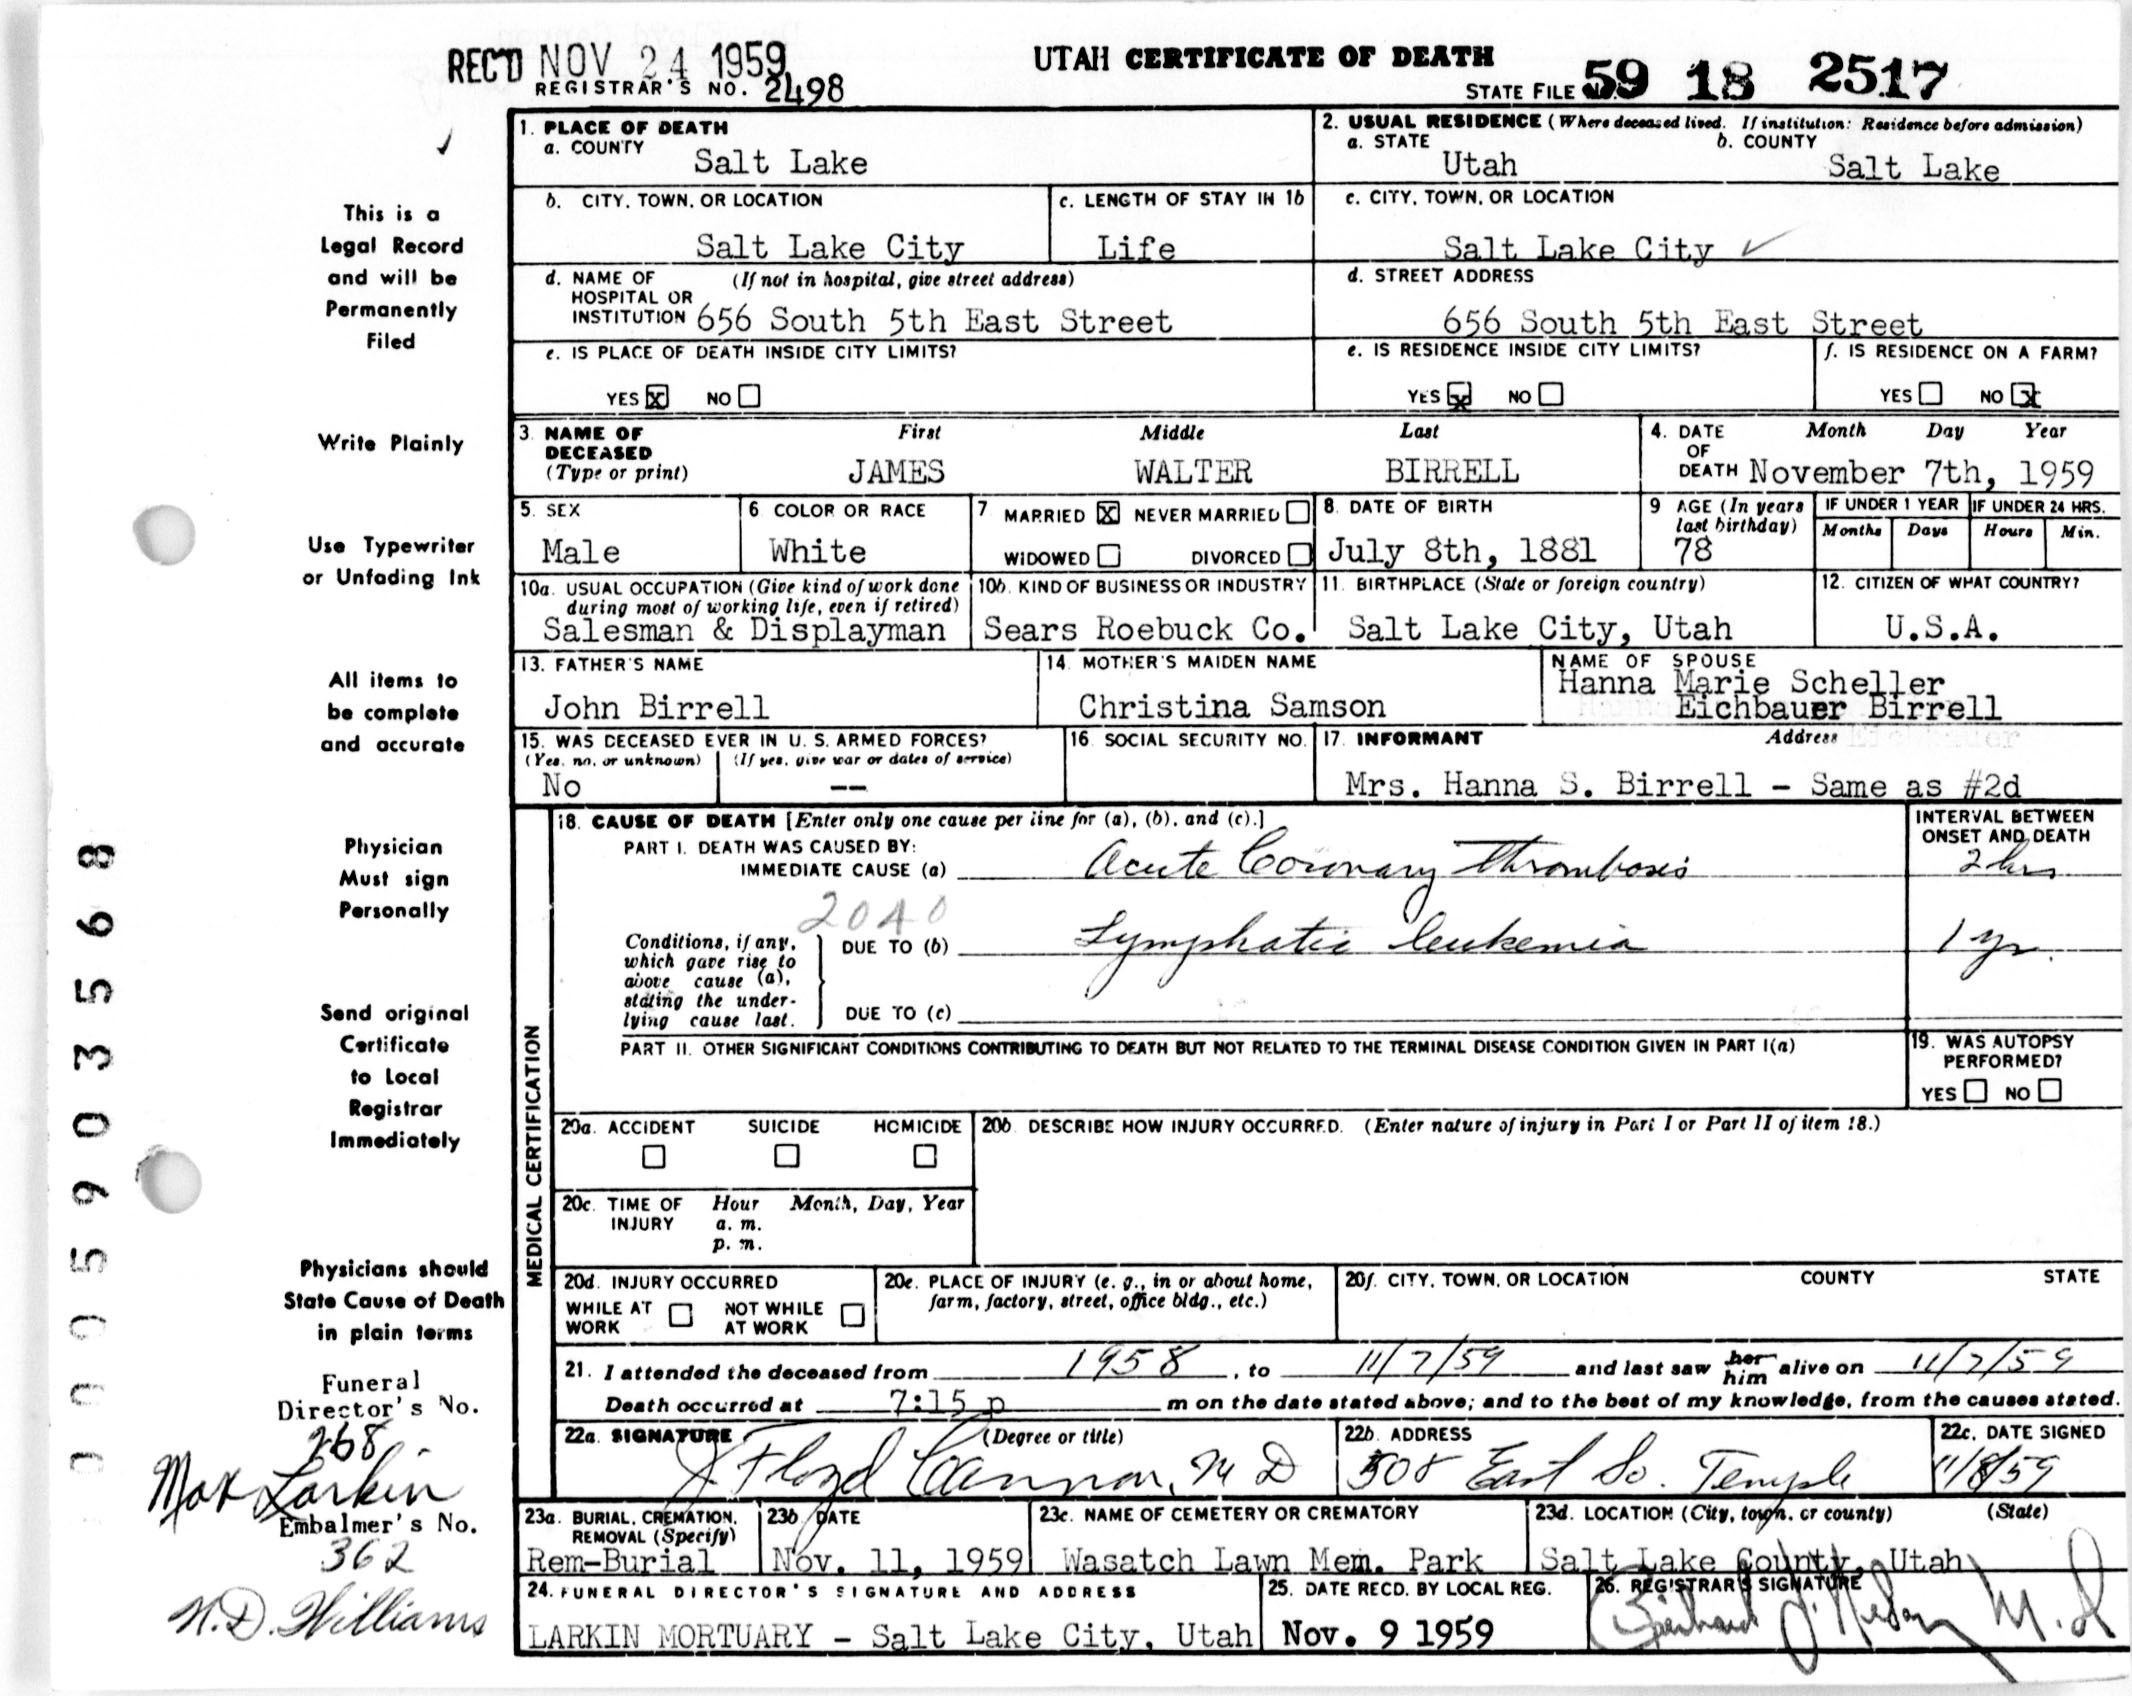 REC'D NOV 24 1959
REGISTRAR'S NO. 2498
UTAH CERTIFICATE OF DEATH
STATE FILE 59 18 2517
This is a
Legal Record
and will be
Permanently
Filed
Write Plainly
Use Typewriter
or Unfading Ink
All items to
be complete
and accurate
Physician
Must sign
Personally
Send original
Certificate
to Local
Registrar
Immediately
Physicians should
State Cause of Death
in plain terms
Funeral
Director's No.
268
Max Larkin
Embalmer's No.
362
N.D. Williams
0005903568
1. PLACE OF DEATH
a. COUNTY
Salt Lake
2. USUAL RESIDENCE (Where deceased lived. If institution: Residence before admission)
a. STATE b. COUNTY
Utah Salt Lake
b. CITY, TOWN, OR LOCATION
Salt Lake City
c. LENGTH OF STAY IN 1b
Life
c. CITY, TOWN, OR LOCATION
Salt Lake City ✓
d. NAME OF (If not in hospital, give street address)
HOSPITAL OR
INSTITUTION 656 South 5th East Street
d. STREET ADDRESS
656 South 5th East Street
e. IS PLACE OF DEATH INSIDE CITY LIMITS?
YES ☒ NO ☐
e. IS RESIDENCE INSIDE CITY LIMITS?
YES ☒ NO ☐
f. IS RESIDENCE ON A FARM?
YES ☐ NO ☒
3. NAME OF First Middle Last
DECEASED
(Type or print) JAMES WALTER BIRRELL
4. DATE Month Day Year
OF
DEATH November 7th, 1959
5. SEX
Male
6. COLOR OR RACE
White
7 MARRIED ☒ NEVER MARRIED ☐
WIDOWED ☐ DIVORCED ☐
8. DATE OF BIRTH
July 8th, 1881
9 AGE (In years
last birthday)
78
IF UNDER 1 YEAR
Months Days
IF UNDER 24 HRS.
Hours Min.
10a. USUAL OCCUPATION (Give kind of work done
during most of working life, even if retired)
Salesman & Displayman
10b. KIND OF BUSINESS OR INDUSTRY
Sears Roebuck Co.
11. BIRTHPLACE (State or foreign country)
Salt Lake City, Utah
12. CITIZEN OF WHAT COUNTRY?
U.S.A.
13. FATHER'S NAME
John Birrell
14. MOTHER'S MAIDEN NAME
Christina Samson
NAME OF SPOUSE
Hanna Marie Scheller
Eichbauer Birrell
15. WAS DECEASED EVER IN U. S. ARMED FORCES?
(Yes, no, or unknown) (If yes, give war or dates of service)
No --
16. SOCIAL SECURITY NO.
17. INFORMANT Address
Mrs. Hanna S. Birrell - Same as #2d
MEDICAL CERTIFICATION
18. CAUSE OF DEATH [Enter only one cause per line for (a), (b), and (c).]
INTERVAL BETWEEN
ONSET AND DEATH
PART I. DEATH WAS CAUSED BY:
IMMEDIATE CAUSE (a) Acute Coronary thrombosis 2 hrs
2040
Conditions, if any,
which gave rise to
above cause (a),
stating the under-
lying cause last.
DUE TO (b) Lymphatic leukemia 1 yr.
DUE TO (c)
PART II. OTHER SIGNIFICANT CONDITIONS CONTRIBUTING TO DEATH BUT NOT RELATED TO THE TERMINAL DISEASE CONDITION GIVEN IN PART I(a)
19. WAS AUTOPSY
PERFORMED?
YES ☐ NO ☐
20a. ACCIDENT SUICIDE HOMICIDE
☐ ☐ ☐
20b. DESCRIBE HOW INJURY OCCURRED. (Enter nature of injury in Part I or Part II of item 18.)
20c. TIME OF Hour Month, Day, Year
INJURY a. m.
p. m.
20d. INJURY OCCURRED
WHILE AT ☐ NOT WHILE ☐
WORK AT WORK
20e. PLACE OF INJURY (e. g., in or about home,
farm, factory, street, office bldg., etc.)
20f. CITY, TOWN, OR LOCATION COUNTY STATE
21. I attended the deceased from 1958, to 11/7/59 and last saw her him alive on 11/7/59
Death occurred at 7:15 p m on the date stated above; and to the best of my knowledge, from the causes stated.
22a. SIGNATURE (Degree or title)
J Floyd Cannon, M D
22b. ADDRESS
508 East So. Temple
22c. DATE SIGNED
11/8/59
23a. BURIAL, CREMATION,
REMOVAL (Specify)
Rem-Burial
23b. DATE
Nov. 11, 1959
23c. NAME OF CEMETERY OR CREMATORY
Wasatch Lawn Mem. Park
23d. LOCATION (City, town, or county) (State)
Salt Lake County, Utah
24. FUNERAL DIRECTOR'S SIGNATURE AND ADDRESS
LARKIN MORTUARY - Salt Lake City, Utah
25. DATE RECD. BY LOCAL REG.
Nov. 9 1959
26. REGISTRAR'S SIGNATURE
M.D